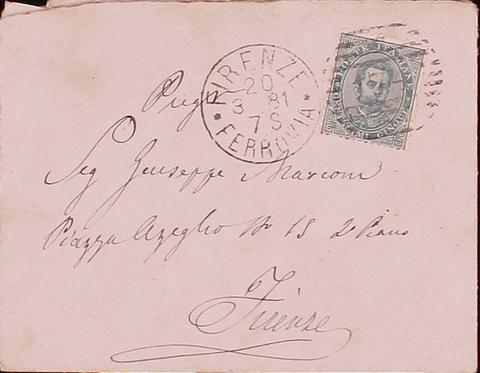 FIRENZE
20
3 81
7 S
* FERROVIA *
Pregº
Sig Giuseppe Marconi
Piazza Azeglio No 15 2º Piano
Firenze